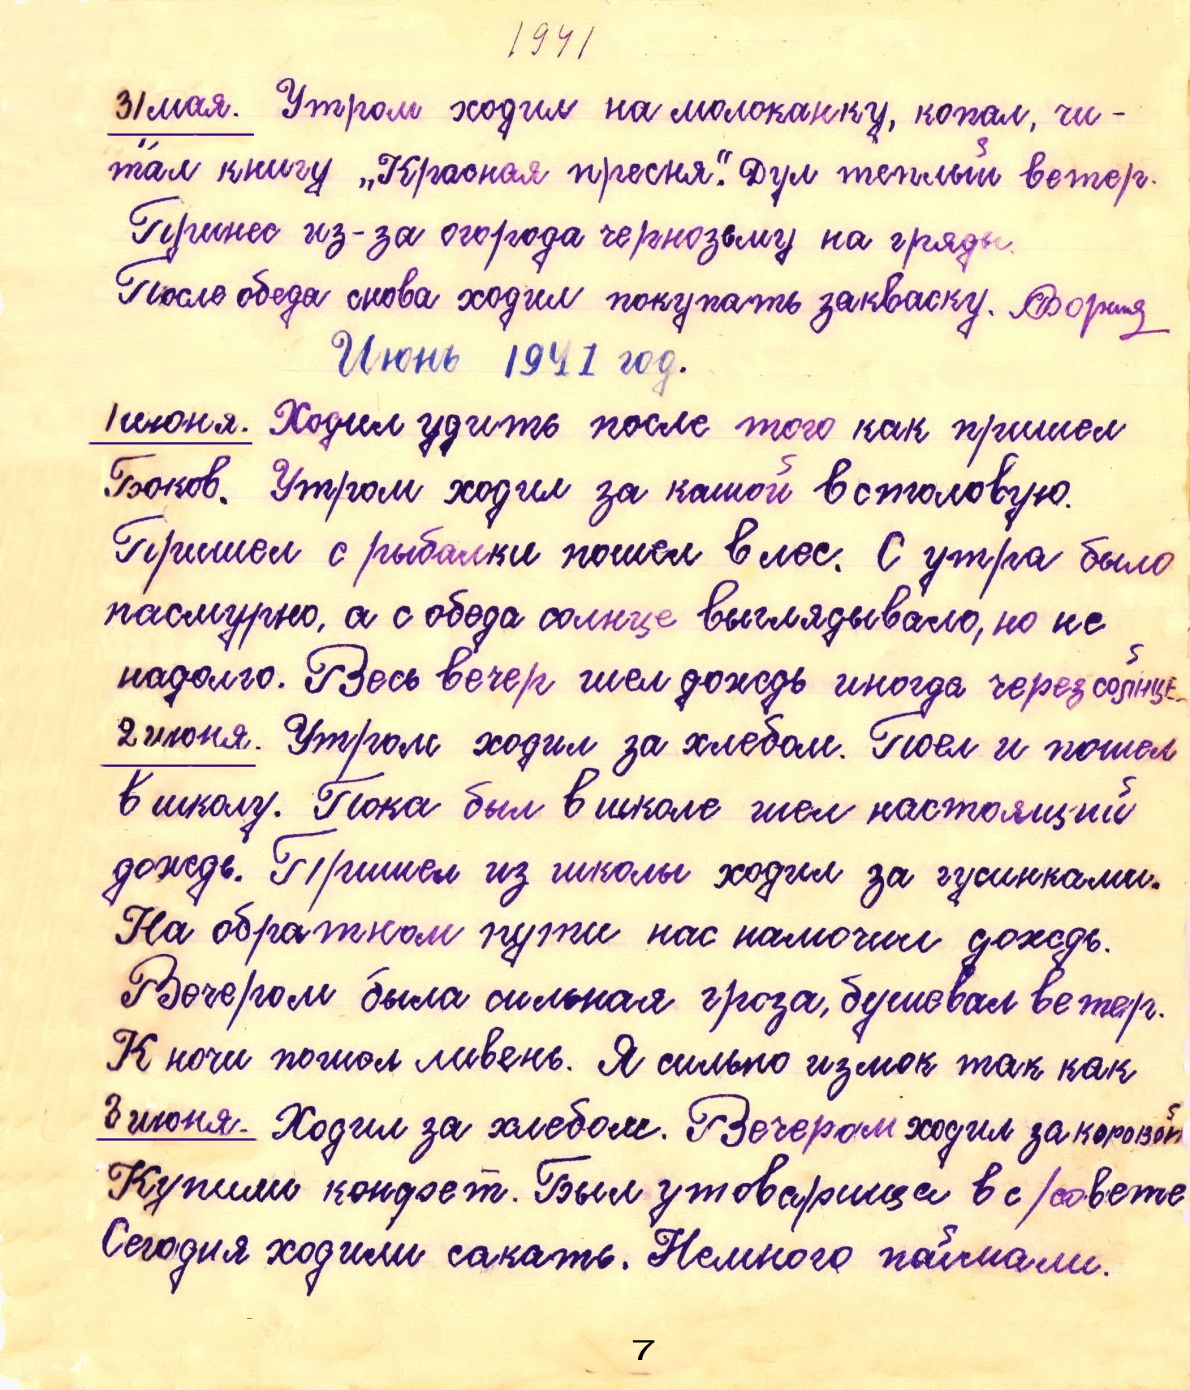 1941
31 мая. Утром ходил на молоканку, копал, чи-
тал книгу „Красная пресня". Дул теплый ветер.
Принес из-за огорода чернозьму на гряды.
После обеда снова ходил покупать закваску.
Июнь 1941 год.
1 июня. Ходил удить после того как пришел
Боков. Утром ходил за кашой в столовую.
Пришел с рыбалки пошел в лес. С утра было
пасмурно, а с обеда солнце выглядывало, но не
надолго. Весь вечер шел дождь иногда через солнце.
2 июня. Утром ходил за хлебом. Поел и пошел
в школу. Пока был в школе шел настоящий
дождь. Пришел из школы ходил за гусинками.
На обратном пути нас намочил дождь.
Вечером была сильная гроза, бушевал ветер.
К ночи пошол ливень. Я сильно измок так как
3 июня. Ходил за хлебом. Вечером ходил за коровой
Купили конфет. Был у товарища в с/совете
Сегодня ходили сакать. Немного паймали.
7